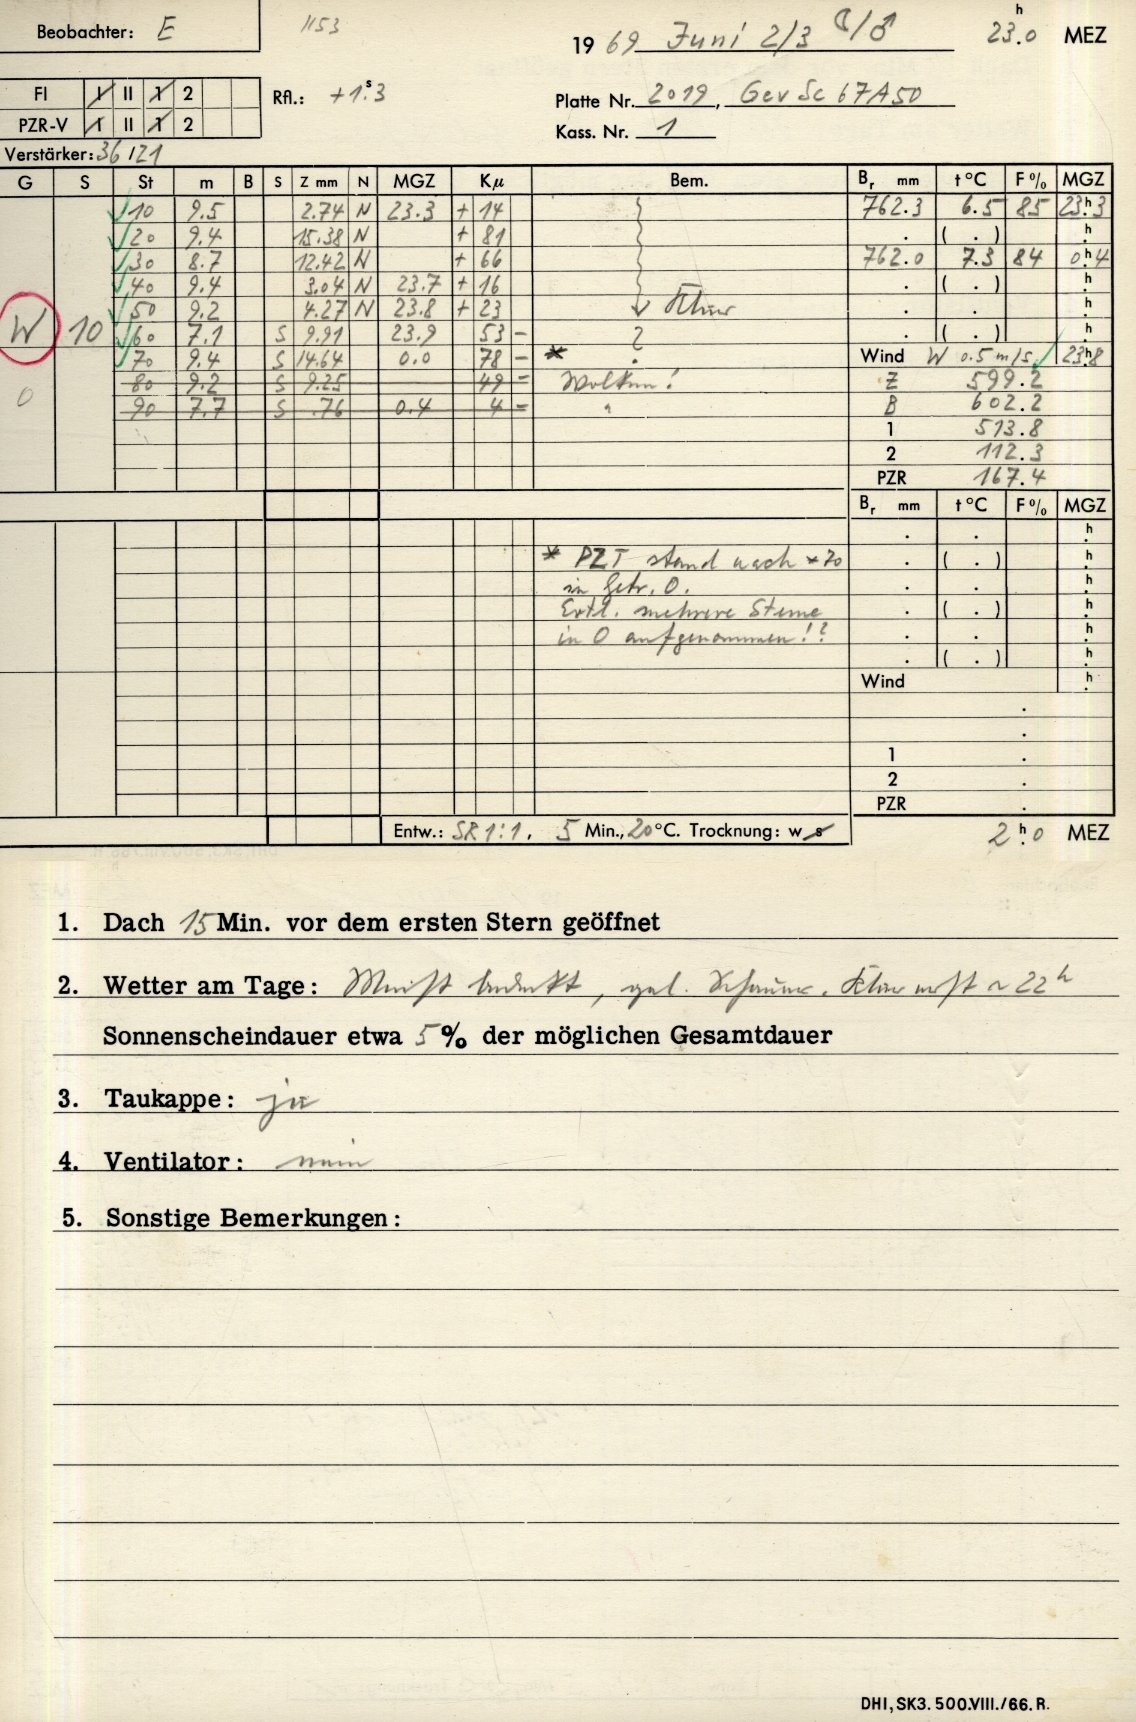 Beobachter: E
1153
19 69 Juni 2/3 ☾/♂
23.0 h MEZ
FI I II 1 2
PZR-V I II 1 2
Rfl.: +1.s3
Platte Nr. 2019, Gev Sc 67A50
Kass. Nr. 1
Verstärker: 36/21
G S St m B S Z mm N MGZ Kμ Bem. Br mm t °C F % MGZ
10 9.5 2.74 N 23.3 + 14 762.3 6.5 85 23.h3
20 9.4 15.38 N + 81 . ( . ) h
30 8.7 12.42 N + 66 762.0 7.3 84 0.h4
40 9.4 3.04 N 23.7 + 16 . ( . ) h
50 9.2 4.27 N 23.8 + 23 Klar . . h
W 10 60 7.1 S 9.91 23.9 53 - ? . ( . ) h
70 9.4 S 14.64 0.0 78 - * . Wind W 0.5 m/s 23.h8
0 80 9.2 S 9.25 49 - Wolken! Z 599.2
90 7.7 S .76 0.4 4 - " B 602.2
1 513.8
2 112.3
PZR 167.4
Br mm t °C F % MGZ
. . h
* PZT stand nach *70 . ( . ) h
in Getr. 0. . . h
Evtl. mehrere Sterne . ( . ) h
in 0 aufgenommen!? . . h
. ( . ) h
Wind h
.
.
1 .
2 .
PZR .
Entw.: SR 1:1. 5 Min., 20 °C. Trocknung: w s
2.h0 MEZ
1. Dach 15 Min. vor dem ersten Stern geöffnet
2. Wetter am Tage: Meist bedeckt, gel. Schauer. Klar erst ~ 22h
Sonnenscheindauer etwa 5 % der möglichen Gesamtdauer
3. Taukappe: ja
4. Ventilator: nein
5. Sonstige Bemerkungen:
DHI, SK3. 500.VIII./66. R.